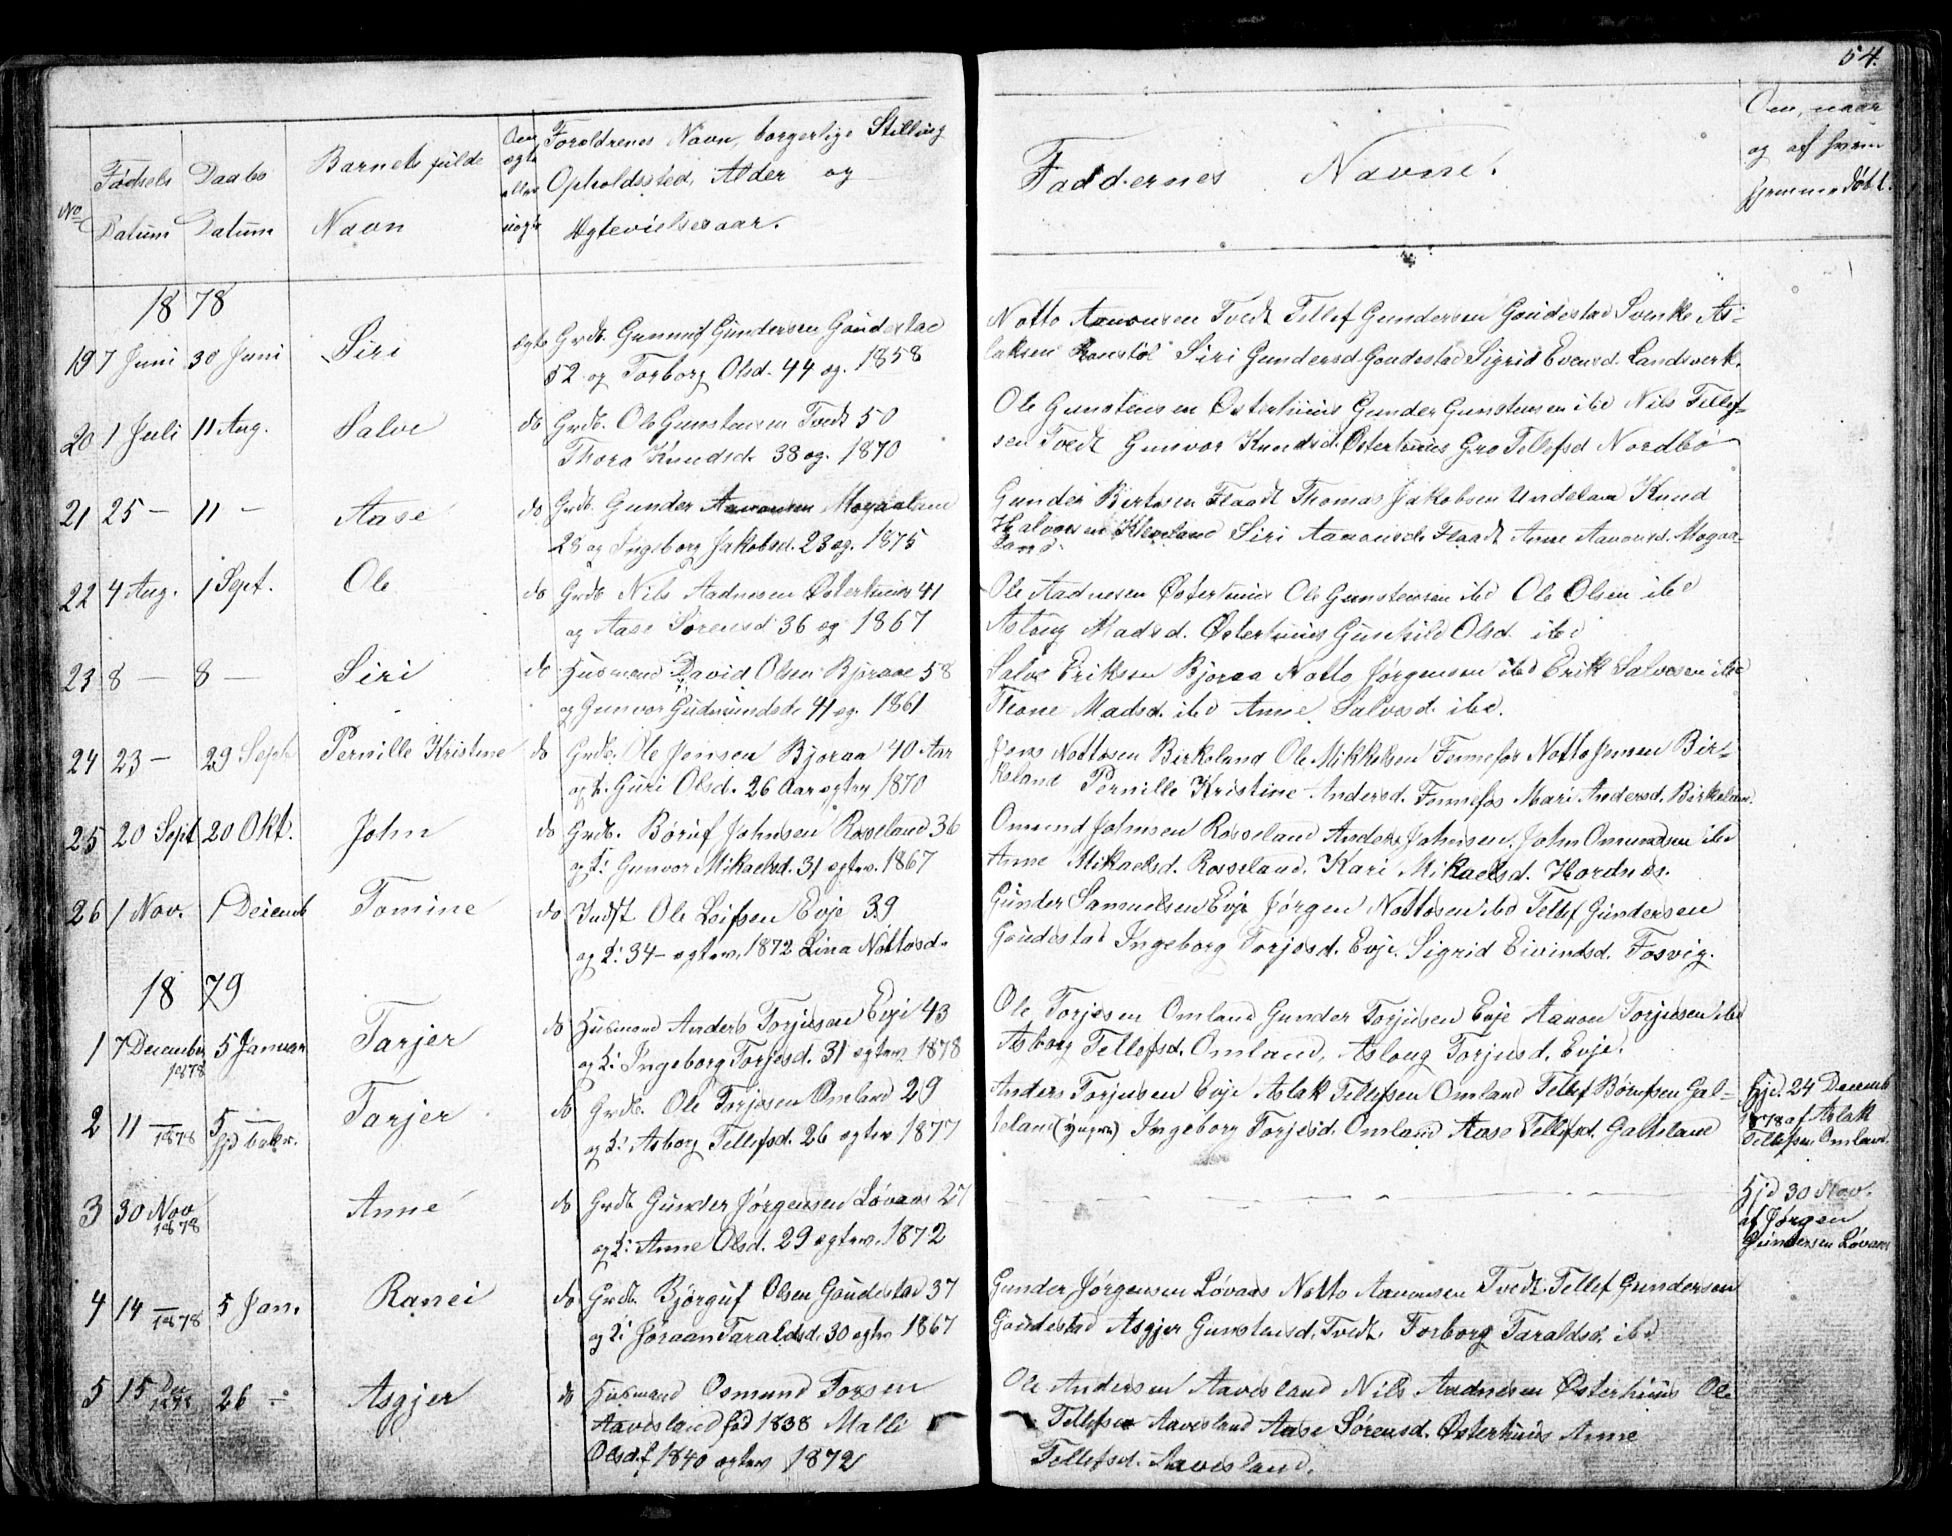 54.
No
Fødsels
Datum
Daabs
Datum
Barnets fulde
Navn
Om
ægte
eller
uægte
Forældrenes Navn, borgerlige Stilling
Opholdssted, Alder og
Ægtevielsesaar.
Faddernes Navne.
Om, naar
og af hvem
hjemmedöbt.
1878
19 7 Juni 30 Juni Siri ægte Grdb. Gunnuf Gundersen Goudestad
52 og Torborg Olsd. 44 æg. 1858
Notto Aanonsen Tvedt Tellef Gundersen Goudestad Svenke As-
laksen Siri Gundersd Goudestad Sigrid Evensd. Landsverk.
20 1 Juli 11 Aug. Salve do Grdb. Ole Gunstensen Tvedt 50
Thora Knudsd. 38 æg. 1870
Ole Gunstensen Østerhuus Gunder Gunstensen ibd Nils Tellef-
sen Tvedt Gunvor Knudsd. Østerhuus Gro Tellefsd Nordbö
21 25 — 11 — Aase do Grdb. Gunder Aanonsen Mogaaland
28 og Ingeborg Jakobsd. 23 æg. 1875
Gunder Flaadt Thomas Jakobsen Undeland Knud
Halvorsen Kleveland Siri Aanonsd. Flaadt Anne Aanonsd. Mogaa-
land.
22 4 Aug. 1 Sept. Ole do Grdb Nils Aadnesen Østerhuus 41
og Aase Sørensd 36 æg 1867
Ole Aadnesen Østerhuus Ole Gunstensen ibd Ole Olsen ibd
Aslaug Madsd. Østerhuus Gunhild Olsd. ibd
23 8 — 8 — Siri do Husmand David Olsen Bjoraae 58
og Gunvor Gudmundsd. 41 æg. 1861
Salve Eriksen Bjoraa Notto Jørgensen ibd Erik Salvesen ibd
Thone Madsd. ibd Anne Salvesd. ibd.
24 23 — 29 Sept Pernille Kristine do Grdb. Ole Jensen Bjoraa 40 Aar
og H. Guri Olsd. 26 Aar ægtev 1870
Jens Nottosen Birkeland Ole Mikkelsen Fennefos Notto Jensen Bir-
keland Pernille Kristine Andersd. Fennefos Mari Andersd. Birkeland.
25 20 Sept 20 Okt. John do Grdb. Böruf Johnsen Rosseland 36
og H: Gunvor Mikaelsd. 31 ægtev. 1867
Omund Johnsen Rosseland Anders Johnsen, John Omundsen ibd
Anne Mikaelsd. Rosseland, Kari Mikaelsd. Hordnes.
26 1 Nov. 1 Decemb Tomine do Indst Ole Leifsen Evje 39
og H: 34 — ægtev. 1872 Lina Nottosd.
Gunder Samuelsen Evje Jørgen Nottosen ibd Tellef Gundersen
Goudestad Ingeborg Torjesd. Evje. Sigrid Eivindsd. Fosvig.
1879
1 7 December 1878 5 Januar Tarjer do Husmand Anders Torjusen Evje 43
og H: Ingeborg Torjesd. 31 ægtev 1878
Ole Torjesen Omland Gunder Torjusen Evje Aanon Torjusen ibd
Asborg Tellefsd. Omland, Aslaug Torjusd. Evje.
2 11 — 1878 5 — hjd bekr. Tarjer do Grdb. Ole Torjesen Omland 29
og H: Asborg Tellefsd. 26 ægtev 1877
Anders Torjusen Evje Aslak Tellefsen Omland Tellef Börufsen Gal-
teland (yngre) Ingeborg Torjesd. Omland Aase Tellefsd. Galteland
Hjd. 24 Decemb
1878 af Aslak
Tellefsen Omland.
3 30 Nov 1878 Anne do Grdb Gunder Jørgensen Løvaas 27
og H: Anne Olsd. 29 ægtev. 1872
Hjd 30 Nov.
af Jørgen
Gundersen Løvaas
4 14 — 1878 5 Jan. Ranei do Grdb. Bjørguf Olsen Goudestad 37
og H: Jøraan Taraldsd. 30 ægtev 1867
Gunder Jørgensen Løvaas Notto Aanonsen Tvedt. Tellef Gundersen
Goudestad Asgjer Gunstensd. Tvedt. Torborg Taraldsd. ibd
5 15 Dec 1878 26 — Asgjer do Husmand Osmund Torsen
Aavesland fød 1838 Malli
Olsd. f 1840 ægtev 1872
Ole Andersen Aavesland Nils Aadnesen Østerhuus Ole
Tellefsen Aavesland Aase Sørensd. Østerhuus Anne
Tellefsd. Aavesland.